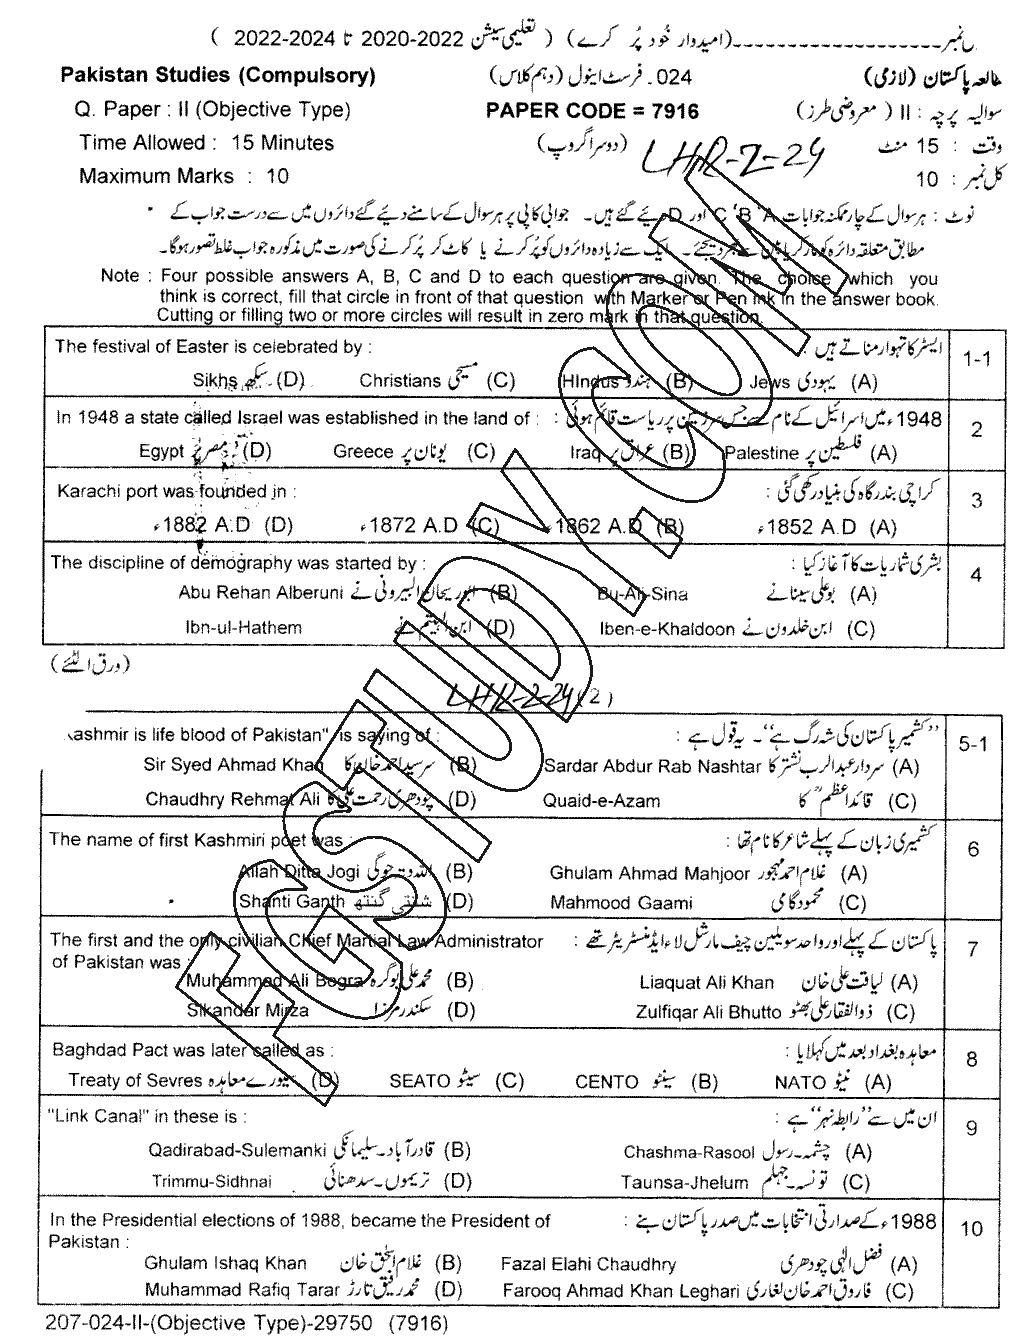 نمبر-------------------(امیدوار خود پُر کرے) ( تعلیمی سیشن 2022-2020 تا 2024-2022 )
Pakistan Studies (Compulsory) 024۔ فرسٹ اینول (دہم کلاس) مطالعہ پاکستان (لازمی)
Q. Paper : II (Objective Type) PAPER CODE = 7916 سوالیہ پرچہ : II ( معروضی طرز)
Time Allowed : 15 Minutes (دوسرا گروپ) LHR-2-24 وقت : 15 منٹ
Maximum Marks : 10 کل نمبر : 10
نوٹ : ہر سوال کے چار ممکنہ جوابات A، B، C اور D دیئے گئے ہیں۔ جوابی کاپی پر ہر سوال کے سامنے دیئے گئے دائروں میں سے درست جواب کے
مطابق متعلقہ دائرہ کو مارکر یا پین سے بھر دیجئے۔ ایک سے زیادہ دائروں کو پُر کرنے یا کاٹ کر پُر کرنے کی صورت میں مذکورہ جواب غلط تصور ہوگا۔
Note : Four possible answers A, B, C and D to each question are given. The choice which you
think is correct, fill that circle in front of that question with Marker or Pen ink in the answer book.
Cutting or filling two or more circles will result in zero mark in that question.
The festival of Easter is celebrated by : ایسٹر کا تہوار مناتے ہیں : 1-1
Sikhs سکھ (D) Christians مسیحی (C) HIndus ہندو (B) Jews یہودی (A)
In 1948 a state called Israel was established in the land of : 1948ء میں اسرائیل کے نام سے جس سرزمین پر ریاست قائم ہوئی : 2
Egypt مصر پر (D) Greece یونان پر (C) Iraq عراق پر (B) Palestine فلسطین پر (A)
Karachi port was founded in : کراچی بندرگاہ کی بنیاد رکھی گئی : 3
1882 A.D ء (D) 1872 A.D ء (C) 1862 A.D ء (B) 1852 A.D ء (A)
The discipline of demography was started by : بشری شماریات کا آغاز کیا : 4
Abu Rehan Alberuni ابوریحان البیرونی نے (B) Bu-Ali-Sina بوعلی سینا نے (A)
Ibn-ul-Hathem ابن الہیثم نے (D) Iben-e-Khaldoon ابن خلدون نے (C)
(ورق الٹئے)
LHR-2-24 (2)
Kashmir is life blood of Pakistan" is saying of : "کشمیر پاکستان کی شہ رگ ہے"۔ یہ قول ہے : 5-1
Sir Syed Ahmad Khan سرسید احمد خان کا (B) Sardar Abdur Rab Nashtar سردار عبدالرب نشتر کا (A)
Chaudhry Rehmat Ali چودھری رحمت علی کا (D) Quaid-e-Azam قائداعظمؒ کا (C)
The name of first Kashmiri poet was : کشمیری زبان کے پہلے شاعر کا نام تھا : 6
Allah Ditta Jogi اللہ دتہ جوگی (B) Ghulam Ahmad Mahjoor غلام احمد مہجور (A)
Shanti Ganth شانتی گنتھ (D) Mahmood Gaami محمود گامی (C)
The first and the only civilian Chief Martial Law Administrator پاکستان کے پہلے اور واحد سویلین چیف مارشل لاء ایڈمنسٹریٹر تھے : 7
of Pakistan was :
Muhammad Ali Bogra محمد علی بوگرہ (B) Liaquat Ali Khan لیاقت علی خان (A)
Sikandar Mirza سکندر مرزا (D) Zulfiqar Ali Bhutto ذوالفقار علی بھٹو (C)
Baghdad Pact was later called as : معاہدہ بغداد بعد میں کہلایا : 8
Treaty of Sevres سیورے معاہدہ (D) SEATO سیٹو (C) CENTO سینٹو (B) NATO نیٹو (A)
"Link Canal" in these is : ان میں سے "رابطہ نہر" ہے : 9
Qadirabad-Sulemanki قادرآباد۔سلیمانکی (B) Chashma-Rasool چشمہ۔رسول (A)
Trimmu-Sidhnai تریموں۔سدھنائی (D) Taunsa-Jhelum تونسہ۔جہلم (C)
In the Presidential elections of 1988, became the President of 1988ء کے صدارتی انتخابات میں صدر پاکستان بنے : 10
Pakistan :
Ghulam Ishaq Khan غلام اسحٰق خان (B) Fazal Elahi Chaudhry فضل الٰہی چودھری (A)
Muhammad Rafiq Tarar محمد رفیق تارڑ (D) Farooq Ahmad Khan Leghari فاروق احمد خان لغاری (C)
207-024-II-(Objective Type)-29750 (7916)
FGSTUDY.COM